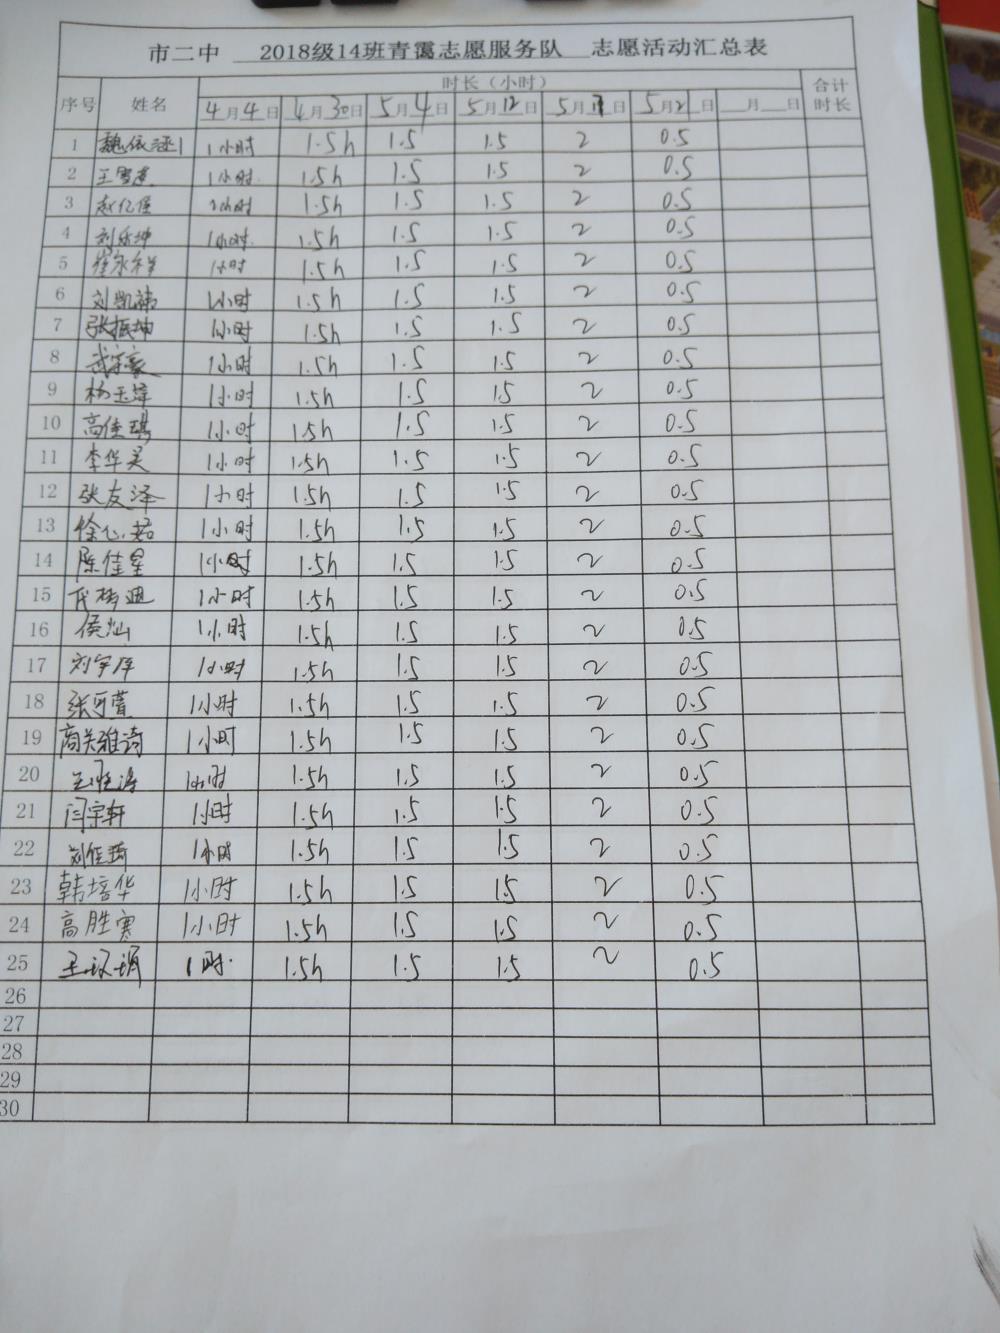 市二中 2018级14班青霭志愿服务队 志愿活动汇总表
序号 姓名 时长（小时） 合计时长
4月4日 4月30日 5月4日 5月12日 5月日 5月21日 月 日
1 魏依涵 1小时 1.5h 1.5 1.5 2 0.5
2 王雪 1小时 1.5h 1.5 1.5 2 0.5
3 赵亿 1小时 1.5h 1.5 1.5 2 0.5
4 刘乐坤 1小时 1.5h 1.5 1.5 2 0.5
5 崔永祥 1小时 1.5h 1.5 1.5 2 0.5
6 刘凯 1小时 1.5h 1.5 1.5 2 0.5
7 张振坤 1小时 1.5h 1.5 1.5 2 0.5
8 武宗豪 1小时 1.5h 1.5 1.5 2 0.5
9 杨玉 1小时 1.5h 1.5 1.5 2 0.5
10 高佳琪 1小时 1.5h 1.5 1.5 2 0.5
11 李华昊 1小时 1.5h 1.5 1.5 2 0.5
12 张友泽 1小时 1.5h 1.5 1.5 2 0.5
13 徐心茹 1小时 1.5h 1.5 1.5 2 0.5
14 陈佳星 1小时 1.5h 1.5 1.5 2 0.5
15 1小时 1.5h 1.5 1.5 2 0.5
16 侯灿 1小时 1.5h 1.5 1.5 2 0.5
17 刘宇 1小时 1.5h 1.5 1.5 2 0.5
18 张可萱 1小时 1.5h 1.5 1.5 2 0.5
19 高关雅诗 1小时 1.5h 1.5 1.5 2 0.5
20 1小时 1.5h 1.5 1.5 2 0.5
21 闫宗轩 1小时 1.5h 1.5 1.5 2 0.5
22 刘佳琦 1小时 1.5h 1.5 1.5 2 0.5
23 韩培华 1小时 1.5h 1.5 1.5 2 0.5
24 高胜寒 1小时 1.5h 1.5 1.5 2 0.5
25 王 1时 1.5h 1.5 1.5 2 0.5
26
27
28
29
30